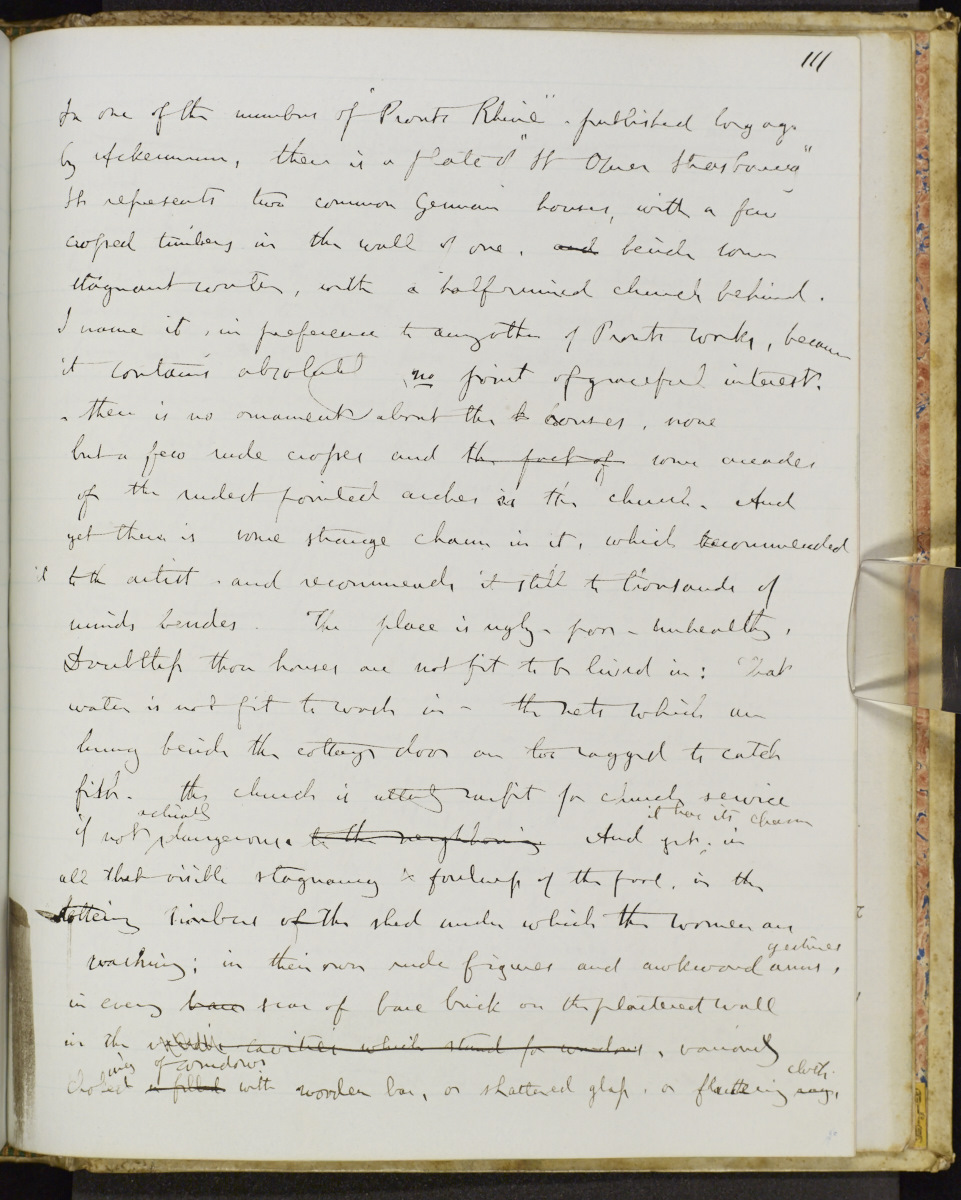 111
In one of the numbers of "Prouts Rhine" - published long ago
by Ackermann, there is a plate of "St Omer Strasbourg"
It represents two common German houses, with a few
crossed timbers in the wall of one, and beside some
stagnant water, with a half ruined church behind.
I name it, in preference to any other of Prouts works, because
it contains absolutely no point of graceful interest.
- there is no ornament about the h houses, none
but a few rude crosses and the fact of some arcades
of the rudest pointed arches in the church. And
yet there is some strange charm in it, which recommended
it to the artist - and recommends it still to thousands of
minds besides. The place is ugly - poor - unhealthy,
Doubtless those houses are not fit to be lived in: That
water is not fit to wash in - the nets which are
hung beside the cottage door are too ragged to catch
fish. the church is utterly unfit for church service
if not actually dangerous. to the neighbouring And yet, it has its charm in
all that visible stagnancy & foulness of the pool, in the
tottering timbers of the shed under which the women are
washing; in their own rude figures and awkward arms, gestures
in every bare scar of bare brick on the plastered wall
in the cavities which stand for windows, variously
choked is filled of windows with wooden bar, or shattered glass, or fluttering rags, cloth.